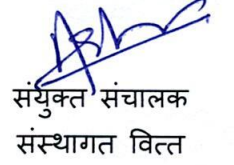 संयुक्त संचालक
संस्थागत वित्त